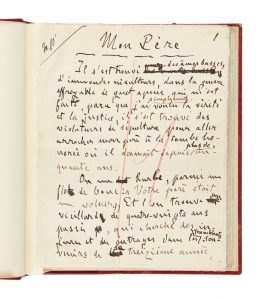 1
Mon Père
Il s'est trouvé des âmes basses,
d'immondes insulteurs, dans la guerre
effroyable de guet-apens qui m'est
faite, parce que j'ai simplement voulu la vérité
et la justice, il s'est trouvé des
violateurs de sépulture pour aller
arracher mon père à la tombe ho-
norée où il dormait depuis plus de cin-
quante ans.
On me hurle, parmi un
flot de boue: Votre père était
un voleur. Et l'on trouve un
vieillard de quatre-vingts ans
passés, qui cherche des in-
jures et des outrages dans les tremblants sou-
venirs de sa treizième année,